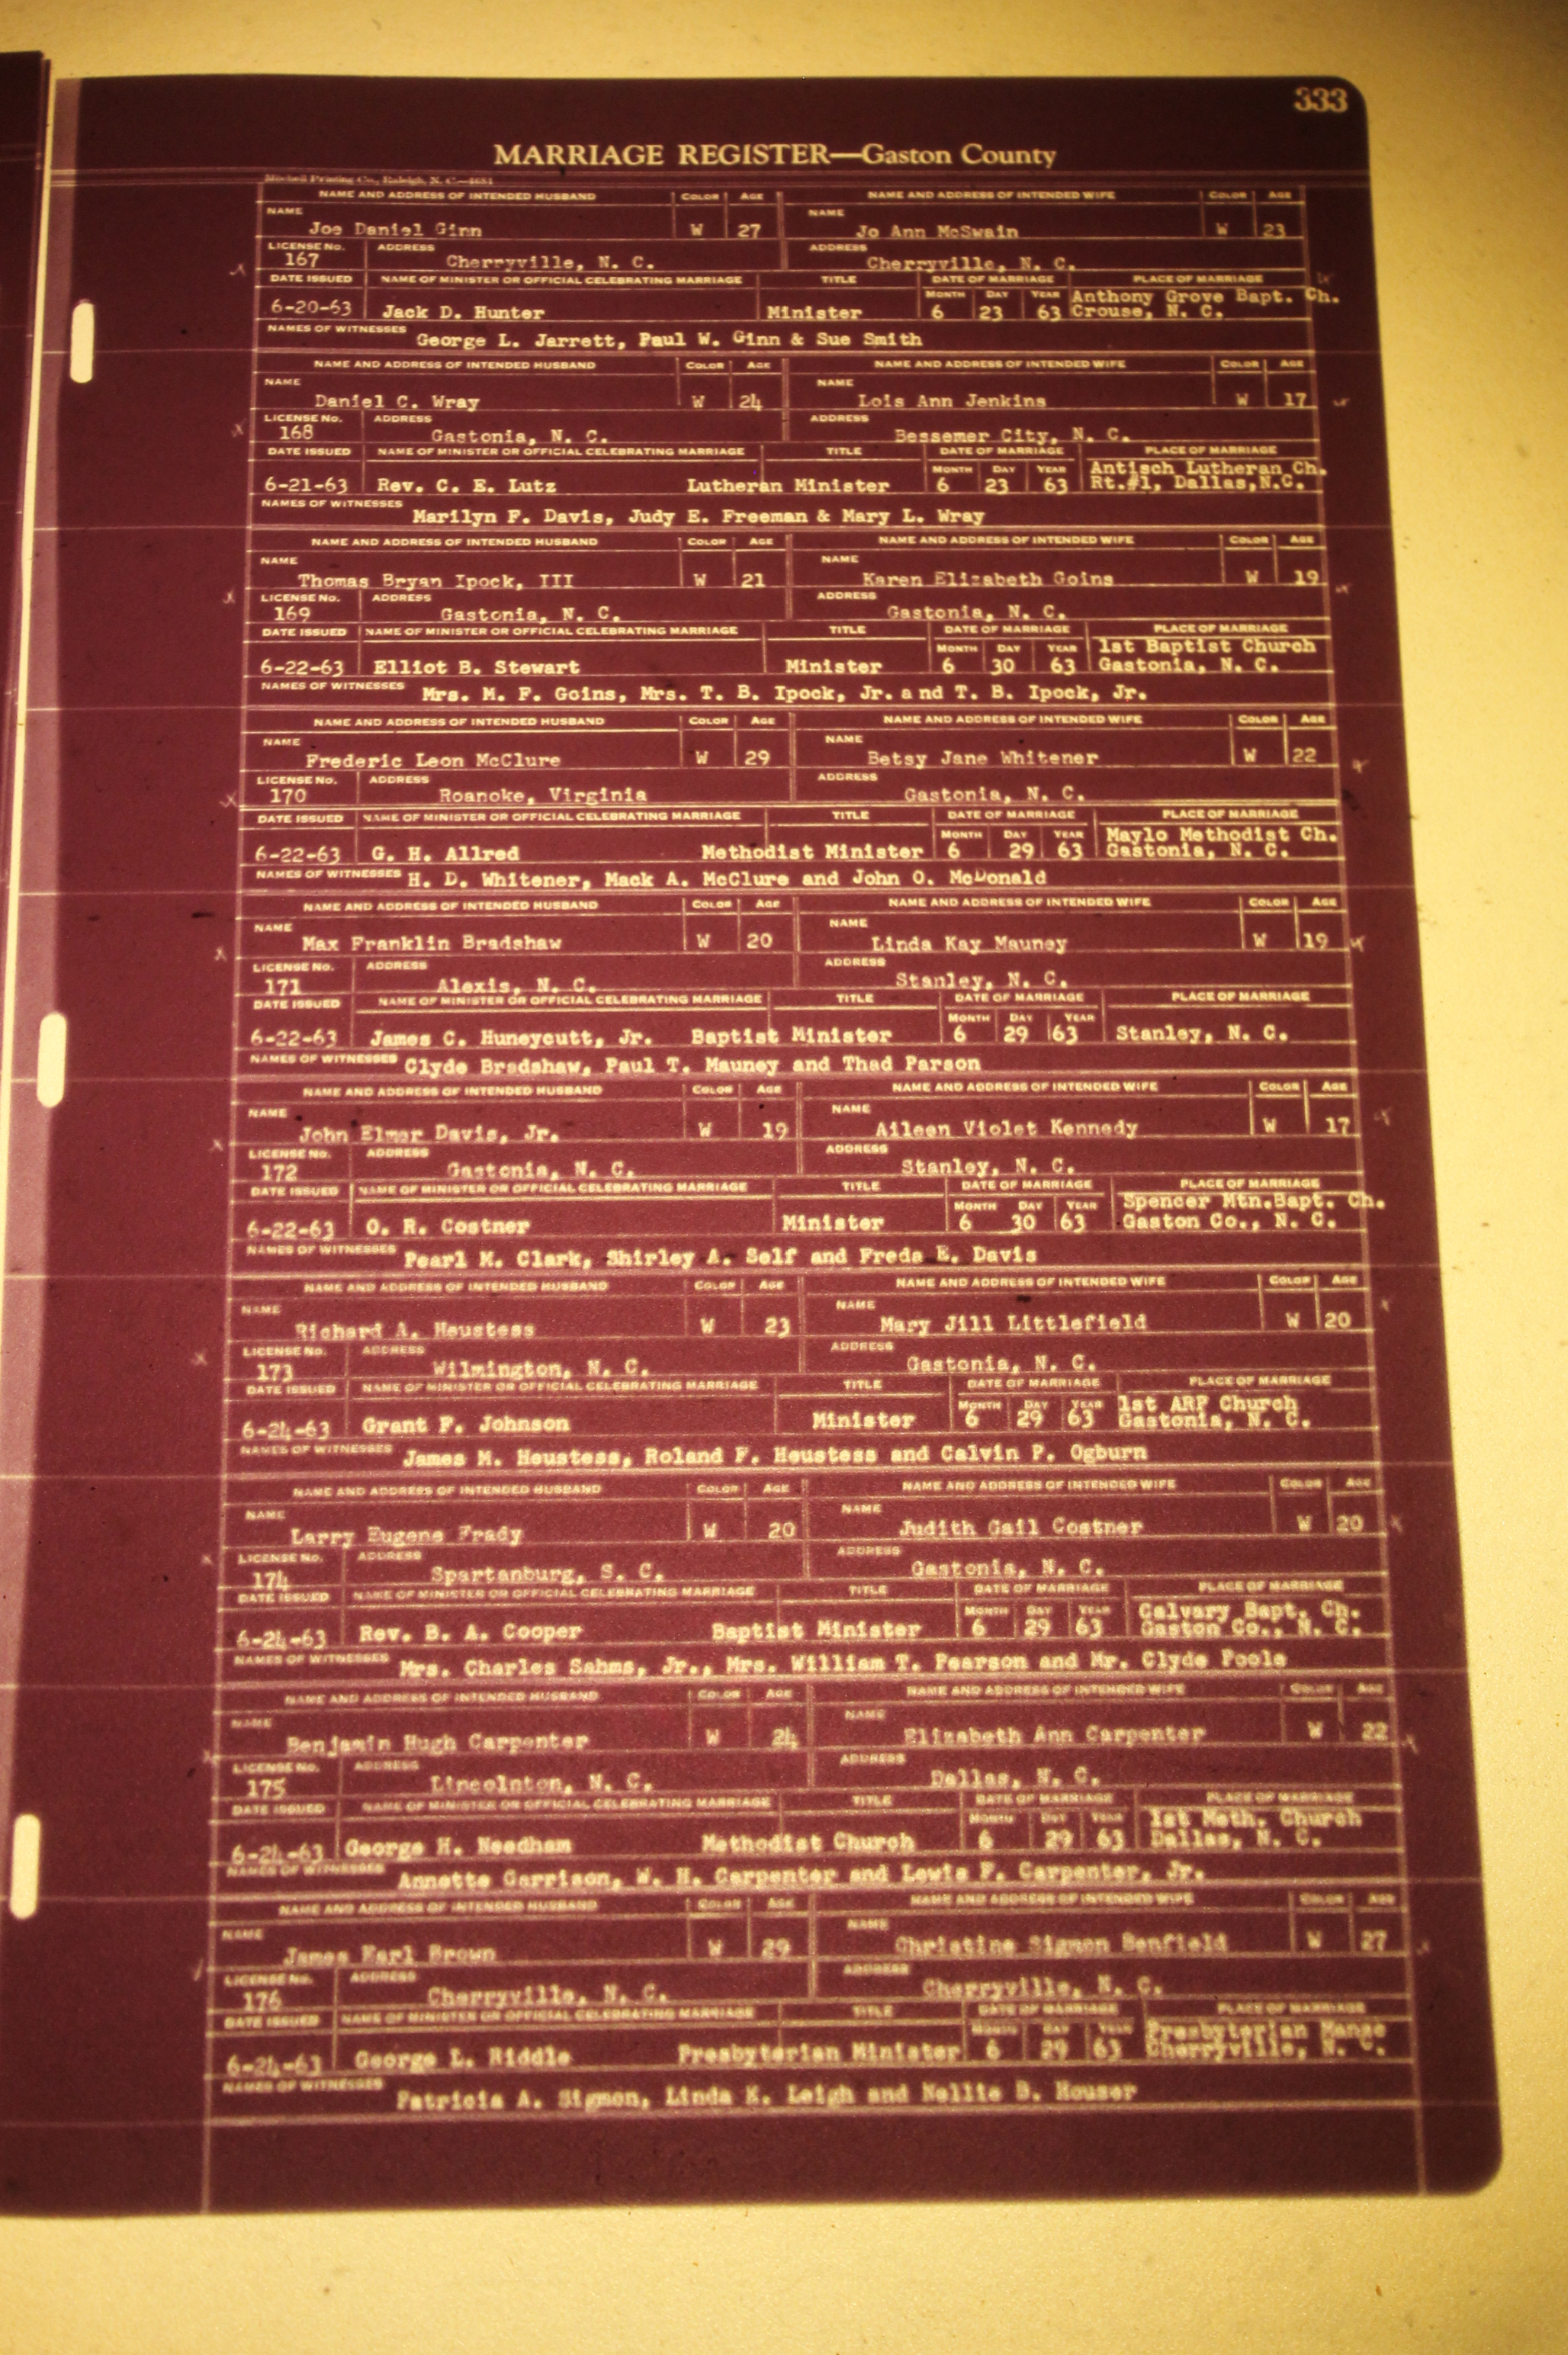 333
MARRIAGE REGISTER—Gaston County
Mitchell Printing Co., Raleigh, N. C.—1651
NAME AND ADDRESS OF INTENDED HUSBAND COLOR AGE NAME AND ADDRESS OF INTENDED WIFE COLOR AGE
NAME Joe Daniel Ginn W 27 NAME Jo Ann McSwain W 23
LICENSE No. 167 ADDRESS Cherryville, N. C. ADDRESS Cherryville, N. C.
DATE ISSUED NAME OF MINISTER OR OFFICIAL CELEBRATING MARRIAGE TITLE DATE OF MARRIAGE PLACE OF MARRIAGE
MONTH DAY YEAR Anthony Grove Bapt. Ch.
6-20-63 Jack D. Hunter Minister 6 23 63 Crouse, N. C.
NAMES OF WITNESSES George L. Jarrett, Paul W. Ginn & Sue Smith
NAME AND ADDRESS OF INTENDED HUSBAND COLOR AGE NAME AND ADDRESS OF INTENDED WIFE COLOR AGE
NAME Daniel C. Wray W 24 NAME Lois Ann Jenkins W 17
LICENSE No. 168 ADDRESS Gastonia, N. C. ADDRESS Bessemer City, N. C.
DATE ISSUED NAME OF MINISTER OR OFFICIAL CELEBRATING MARRIAGE TITLE DATE OF MARRIAGE PLACE OF MARRIAGE
MONTH DAY YEAR Antisch Lutheran Ch.
6-21-63 Rev. C. E. Lutz Lutheran Minister 6 23 63 Rt.#1, Dallas,N.C.
NAMES OF WITNESSES Marilyn F. Davis, Judy E. Freeman & Mary L. Wray
NAME AND ADDRESS OF INTENDED HUSBAND COLOR AGE NAME AND ADDRESS OF INTENDED WIFE COLOR AGE
NAME Thomas Bryan Ipock, III W 21 NAME Karen Elizabeth Goins W 19
LICENSE No. 169 ADDRESS Gastonia, N. C. ADDRESS Gastonia, N. C.
DATE ISSUED NAME OF MINISTER OR OFFICIAL CELEBRATING MARRIAGE TITLE DATE OF MARRIAGE PLACE OF MARRIAGE
MONTH DAY YEAR 1st Baptist Church
6-22-63 Elliot B. Stewart Minister 6 30 63 Gastonia, N. C.
NAMES OF WITNESSES Mrs. M. F. Goins, Mrs. T. B. Ipock, Jr. and T. B. Ipock, Jr.
NAME AND ADDRESS OF INTENDED HUSBAND COLOR AGE NAME AND ADDRESS OF INTENDED WIFE COLOR AGE
NAME Frederic Leon McClure W 29 NAME Betsy Jane Whitener W 22
LICENSE No. 170 ADDRESS Roanoke, Virginia ADDRESS Gastonia, N. C.
DATE ISSUED NAME OF MINISTER OR OFFICIAL CELEBRATING MARRIAGE TITLE DATE OF MARRIAGE PLACE OF MARRIAGE
MONTH DAY YEAR Maylo Methodist Ch.
6-22-63 G. H. Allred Methodist Minister 6 29 63 Gastonia, N. C.
NAMES OF WITNESSES H. D. Whitener, Mack A. McClure and John O. McDonald
NAME AND ADDRESS OF INTENDED HUSBAND COLOR AGE NAME AND ADDRESS OF INTENDED WIFE COLOR AGE
NAME Max Franklin Bradshaw W 20 NAME Linda Kay Mauney W 19
LICENSE No. 171 ADDRESS Alexis, N. C. ADDRESS Stanley, N. C.
DATE ISSUED NAME OF MINISTER OR OFFICIAL CELEBRATING MARRIAGE TITLE DATE OF MARRIAGE PLACE OF MARRIAGE
MONTH DAY YEAR
6-22-63 James C. Huneycutt, Jr. Baptist Minister 6 29 63 Stanley, N. C.
NAMES OF WITNESSES Clyde Bradshaw, Paul T. Mauney and Thad Parson
NAME AND ADDRESS OF INTENDED HUSBAND COLOR AGE NAME AND ADDRESS OF INTENDED WIFE COLOR AGE
NAME John Elmer Davis, Jr. W 19 NAME Aileen Violet Kennedy W 17
LICENSE No. 172 ADDRESS Gastonia, N. C. ADDRESS Stanley, N. C.
DATE ISSUED NAME OF MINISTER OR OFFICIAL CELEBRATING MARRIAGE TITLE DATE OF MARRIAGE PLACE OF MARRIAGE
MONTH DAY YEAR Spencer Mtn.Bapt. Ch.
6-22-63 O. R. Costner Minister 6 30 63 Gaston Co., N. C.
NAMES OF WITNESSES Pearl M. Clark, Shirley A. Self and Freda E. Davis
NAME AND ADDRESS OF INTENDED HUSBAND COLOR AGE NAME AND ADDRESS OF INTENDED WIFE COLOR AGE
NAME Richard A. Heustess W 23 NAME Mary Jill Littlefield W 20
LICENSE No. 173 ADDRESS Wilmington, N. C. ADDRESS Gastonia, N. C.
DATE ISSUED NAME OF MINISTER OR OFFICIAL CELEBRATING MARRIAGE TITLE DATE OF MARRIAGE PLACE OF MARRIAGE
MONTH DAY YEAR 1st ARP Church
6-24-63 Grant F. Johnson Minister 6 29 63 Gastonia, N. C.
NAMES OF WITNESSES James M. Heustess, Roland F. Heustess and Calvin P. Ogburn
NAME AND ADDRESS OF INTENDED HUSBAND COLOR AGE NAME AND ADDRESS OF INTENDED WIFE COLOR AGE
NAME Larry Eugene Frady W 20 NAME Judith Gail Costner W 20
LICENSE No. 174 ADDRESS Spartanburg, S. C. ADDRESS Gastonia, N. C.
DATE ISSUED NAME OF MINISTER OR OFFICIAL CELEBRATING MARRIAGE TITLE DATE OF MARRIAGE PLACE OF MARRIAGE
MONTH DAY YEAR Calvary Bapt. Ch.
6-24-63 Rev. B. A. Cooper Baptist Minister 6 29 63 Gaston Co., N. C.
NAMES OF WITNESSES Mrs. Charles Sahms, Jr., Mrs. William T. Pearson and Mr. Clyde Poole
NAME AND ADDRESS OF INTENDED HUSBAND COLOR AGE NAME AND ADDRESS OF INTENDED WIFE COLOR AGE
NAME Benjamin Hugh Carpenter W 24 NAME Elizabeth Ann Carpenter W 22
LICENSE No. 175 ADDRESS Lincolnton, N. C. ADDRESS Dallas, N. C.
DATE ISSUED NAME OF MINISTER OR OFFICIAL CELEBRATING MARRIAGE TITLE DATE OF MARRIAGE PLACE OF MARRIAGE
MONTH DAY YEAR 1st Meth. Church
6-24-63 George H. Needham Methodist Church 6 29 63 Dallas, N. C.
NAMES OF WITNESSES Annette Garrison, W. H. Carpenter and Lewis F. Carpenter, Jr.
NAME AND ADDRESS OF INTENDED HUSBAND COLOR AGE NAME AND ADDRESS OF INTENDED WIFE COLOR AGE
NAME James Earl Brown W 29 NAME Christine Sigmon Benfield W 27
LICENSE No. 176 ADDRESS Cherryville, N. C. ADDRESS Cherryville, N. C.
DATE ISSUED NAME OF MINISTER OR OFFICIAL CELEBRATING MARRIAGE TITLE DATE OF MARRIAGE PLACE OF MARRIAGE
MONTH DAY YEAR Presbyterian Manse
6-24-63 George L. Riddle Presbyterian Minister 6 29 63 Cherryville, N. C.
NAMES OF WITNESSES Patricia A. Sigmon, Linda K. Leigh and Nellie B. Houser